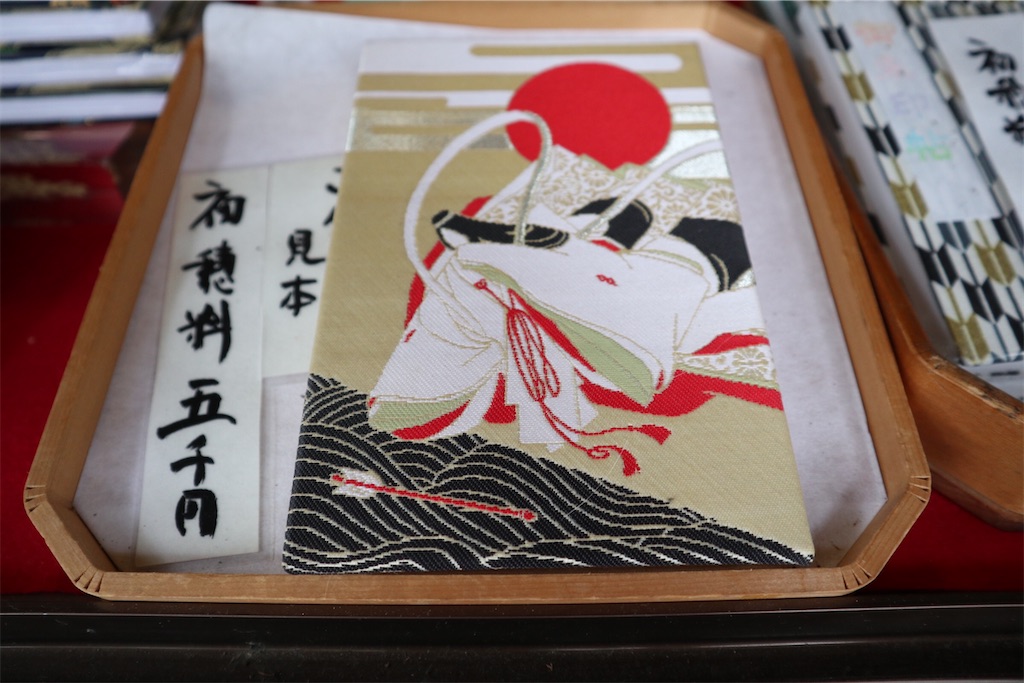 見本
初穂料 五千円
初穂料